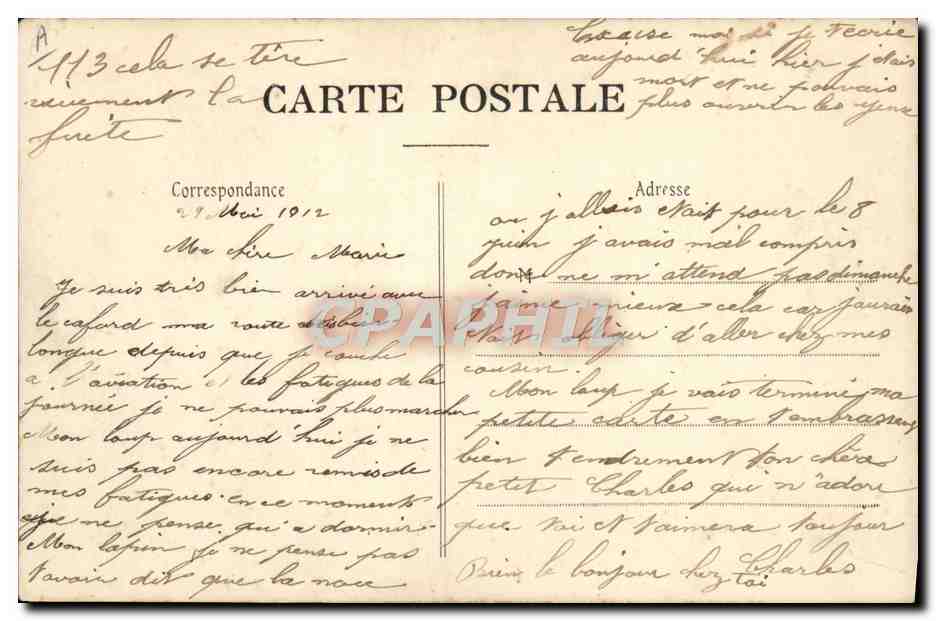 A
113 cela se tire
vivement la
fuite
Excuse moi si je t'ecrie
aujourd'hui hier j'etais
mort et ne pouvais
plus ouvrir les yeux
CARTE POSTALE
Correspondance
Adresse
29 Mai 1912
Ma chère Marie
Je suis très bien arrivé avec
le cafard ma route a
longue depuis que je couche
a l'aviation et les fatigues de la
journée je ne pouvais plus marcher
Mon loup aujourd'hui je ne
suis pas encore remis de
mes fatigues en ce moment
je ne pense qu'a dormir
Mon lapin je ne pense pas
t'avoir dit que la noce
ou j'allais etait pour le 8
juin j'avais mal compris
donc ne m'attend pas dimanche
j'aime mieux cela car j'aurais
etait obliger d'aller chez mes
cousin.
Mon loup je vais terminé ma
petite carte en t'embrassant
bien tendrement ton chère
petit Charles qui n'adore
que toi et t'aimera toujour
Charles
Bien le bonjour chez toi
CPAPHIL